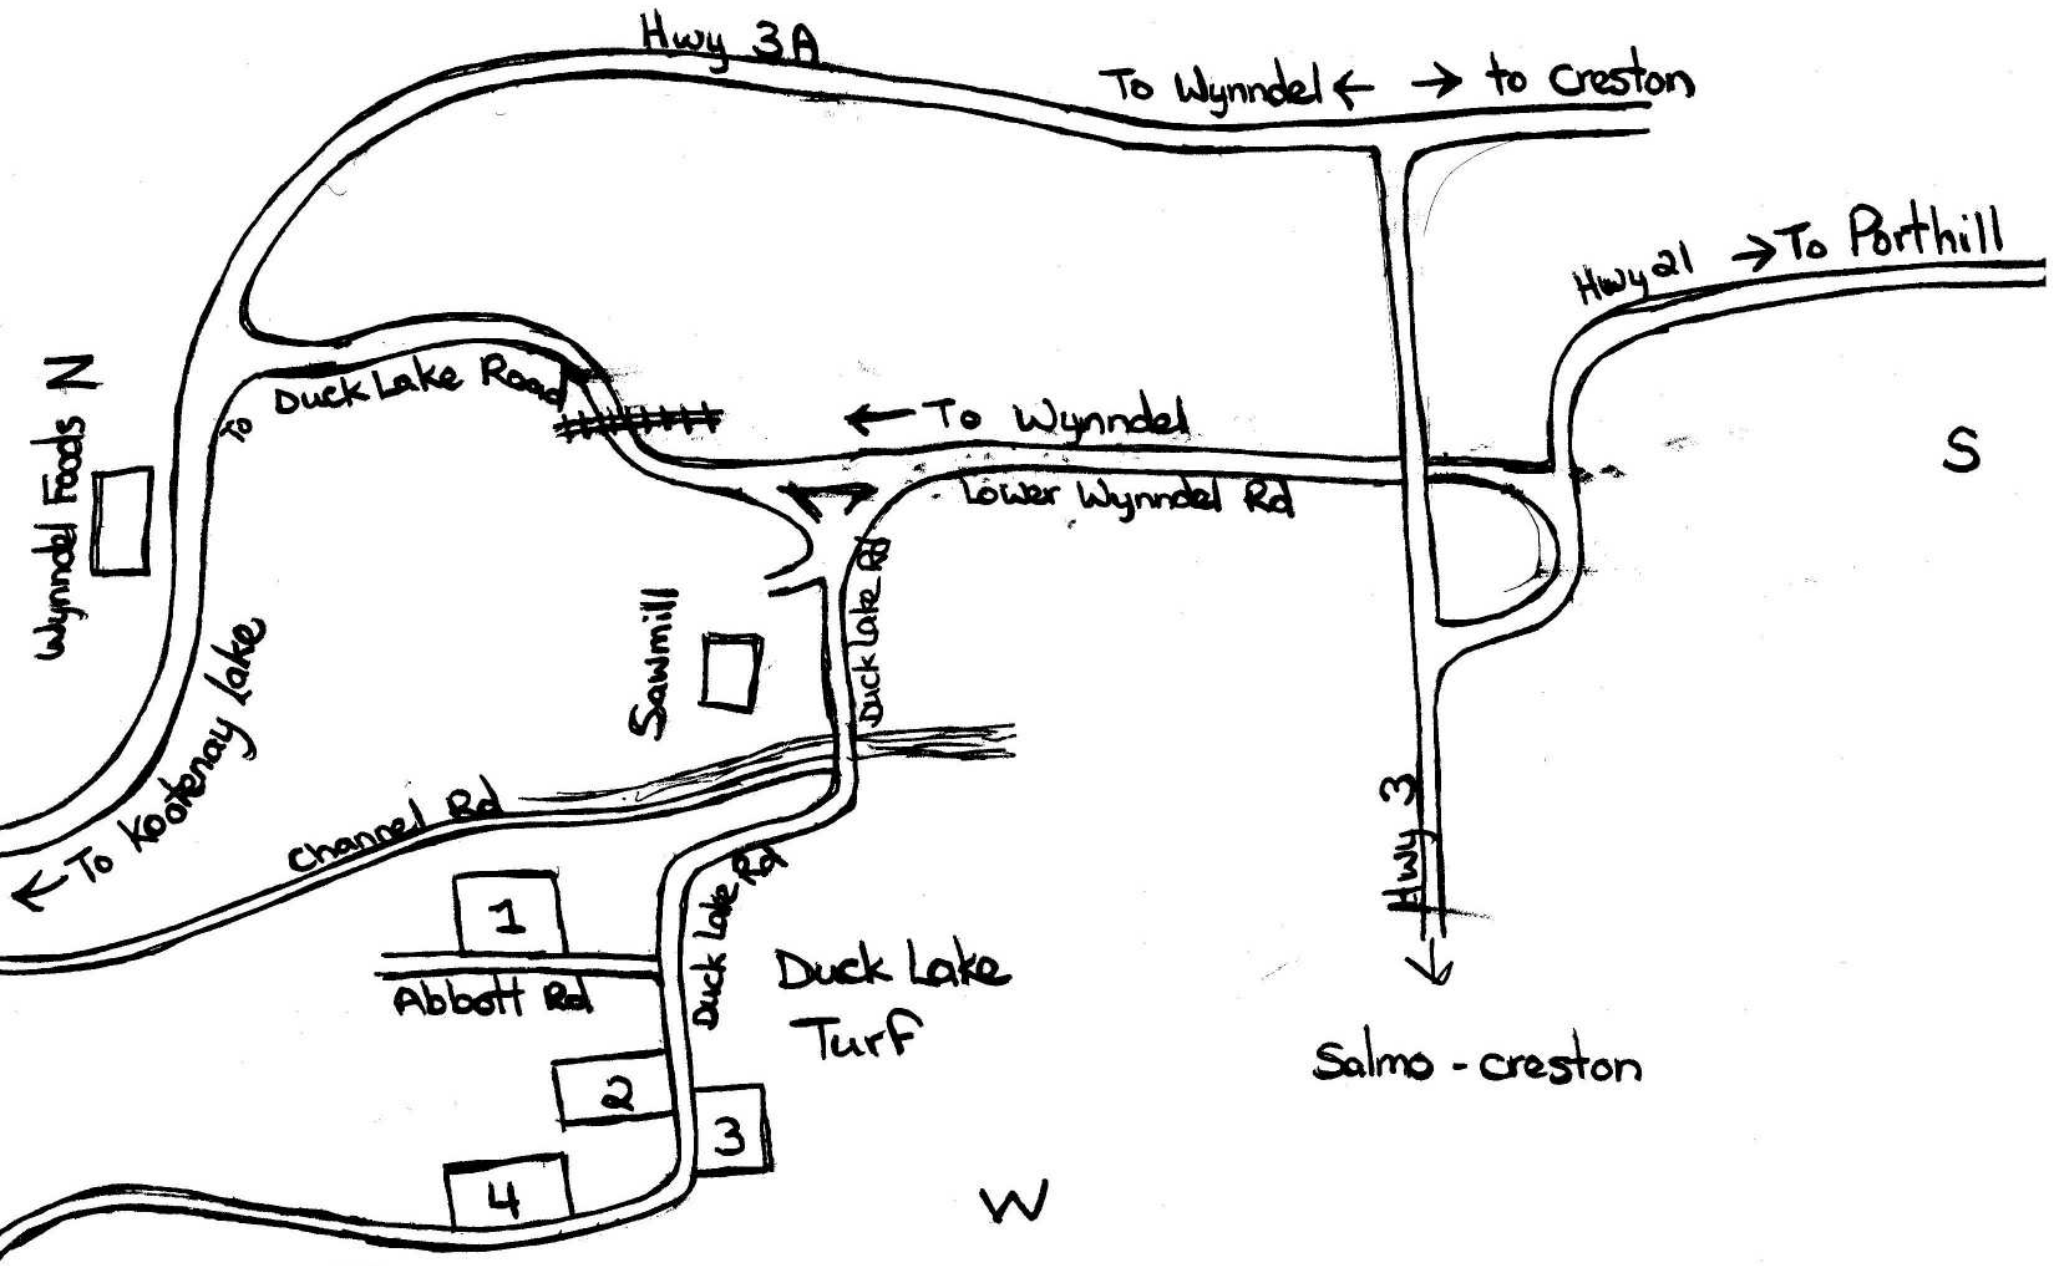 Hwy 3A
To Wynndel ← → to Creston
Hwy 21 → To Porthill
N
Wynndel Foods
To
Duck Lake Road
← To Wynndel
Lower Wynndel Rd
S
Duck Lake Rd
Sawmill
← To Kootenay Lake
Channel Rd
Hwy 3
1
Abbott Rd
Duck Lake Rd
Duck Lake
Turf
2
3
4
Salmo - creston
W